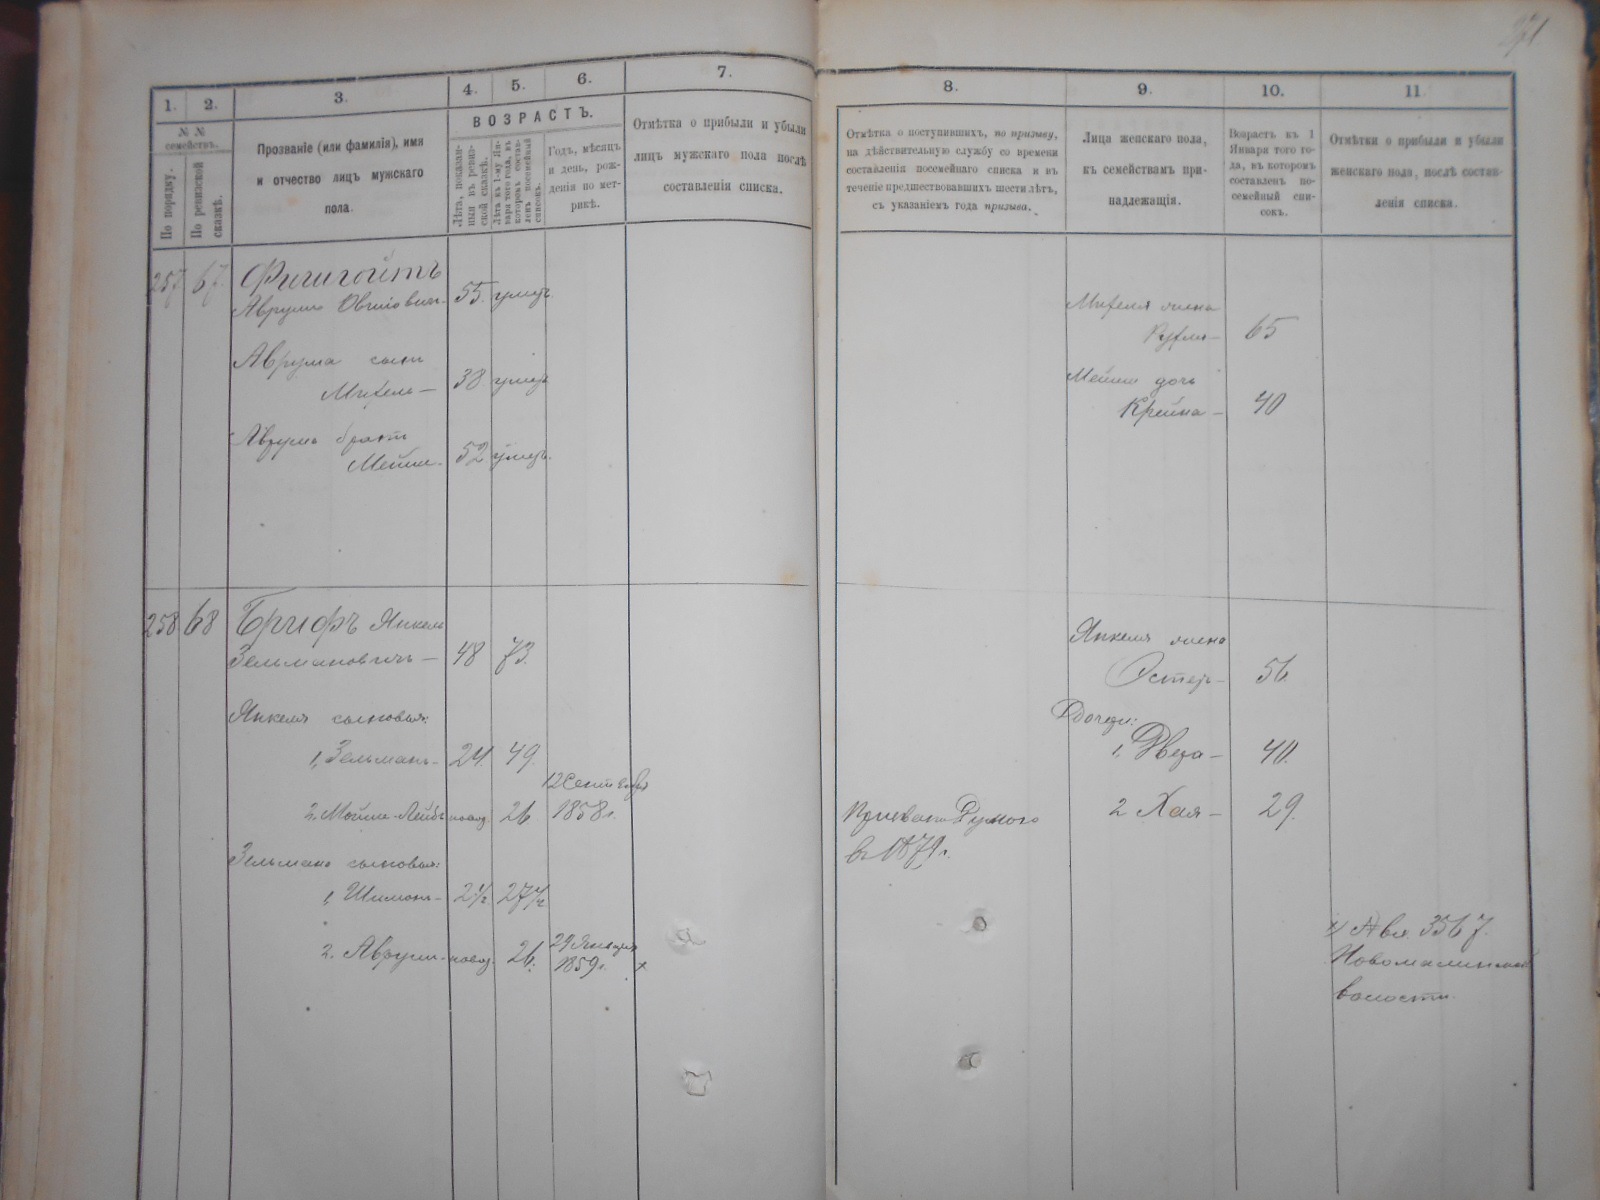 271
1.
2.
3.
4.
5.
6.
7.
№ №
семействъ.
По порядку.
По ревизской
сказкѣ.
Прозваніе (или фамилія), имя
и отчество лицъ мужского
пола.
ВОЗРАСТЪ.
Лѣта, показан-
ныя въ ревиз-
ской сказкѣ.
Лѣта къ 1-му Ян-
варя того года, въ
которомъ состав-
ленъ посемейный
списокъ.
Годъ, мѣсяцъ
и день, рож-
денія по мет-
рикѣ.
Отмѣтка о прибыли и убыли
лицъ мужского пола послѣ
составленія списка.
257. 67.
Аврумъ 55. умеръ.
Аврума сынъ
Михель — 38 умеръ
Аврума братъ
Мейше — 52 умеръ.
258 68 Брифъ Янкель
Зельмановичъ — 48 73.
Янкеля сыновья:
1, Зельманъ — 24. 49.
12 Сентября
2. Мойше-Лейбъ новор. 26. 1858 г.
Зельмана сыновья:
1, Шимонъ — 2½ 27½
2. Аврумъ — новор. 26. 29 Января
1859 г. х
8.
9.
10.
11
Отмѣтка о поступившихъ, по призыву,
на дѣйствительную службу со времени
составленія посемейнаго списка и въ
теченіе предшествовавшихъ шести лѣтъ,
съ указаніемъ года призыва.
Лица женскаго пола,
къ семействамъ при-
надлежащія.
Возрастъ къ 1
Января того го-
да, въ которомъ
составленъ по-
семейный спи-
сокъ.
Отмѣтки о прибыли и убыли
женскаго пола, послѣ состав-
ленія списка.
Михеля жена
Рухля — 65
Мейши дочь
Крейна — 40
Янкеля жена
Эстеръ — 56.
Дочери:
1, Двера — 40.
2 Хая — 29.
въ 1879 г.
х) 3567.
Новомалинской
волости.